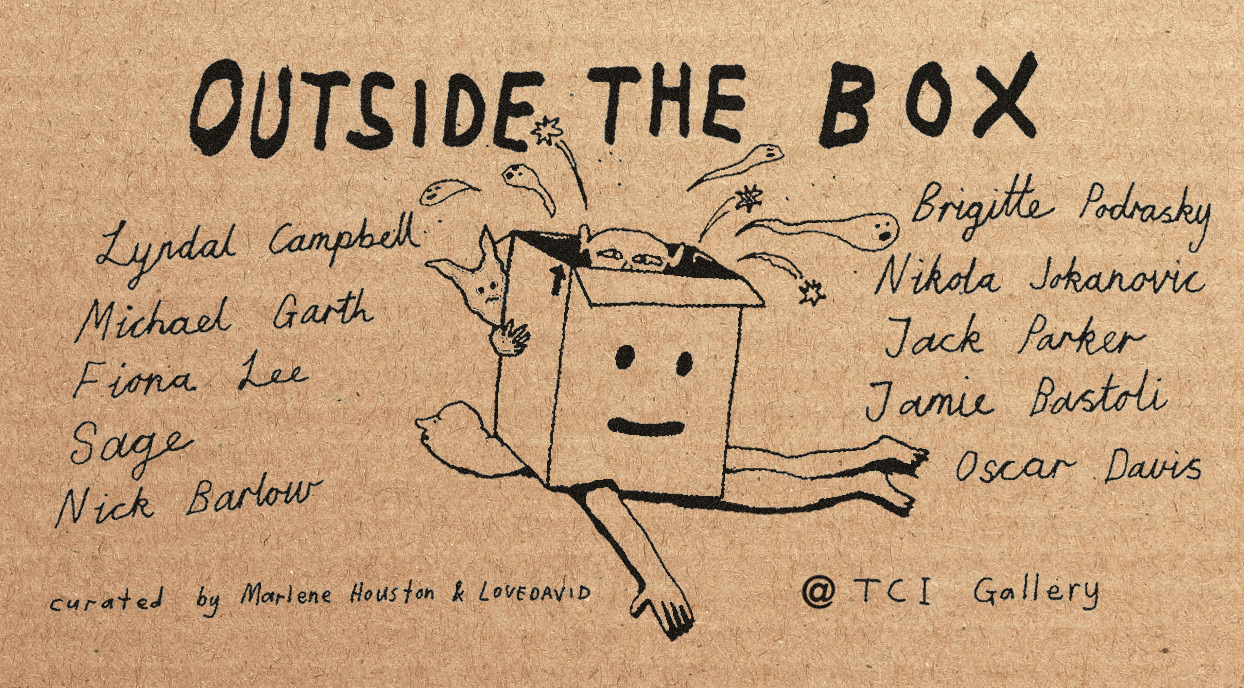 OUTSIDE THE BOX
Lyndal Campbell
Michael Garth
Fiona Lee
Sage
Nick Barlow
Brigitte Podrasky
Nikola Jokanovic
Jack Parker
Jamie Bastoli
Oscar Davis
curated by Marlene Houston & LOVEDAVID
@ TCI Gallery